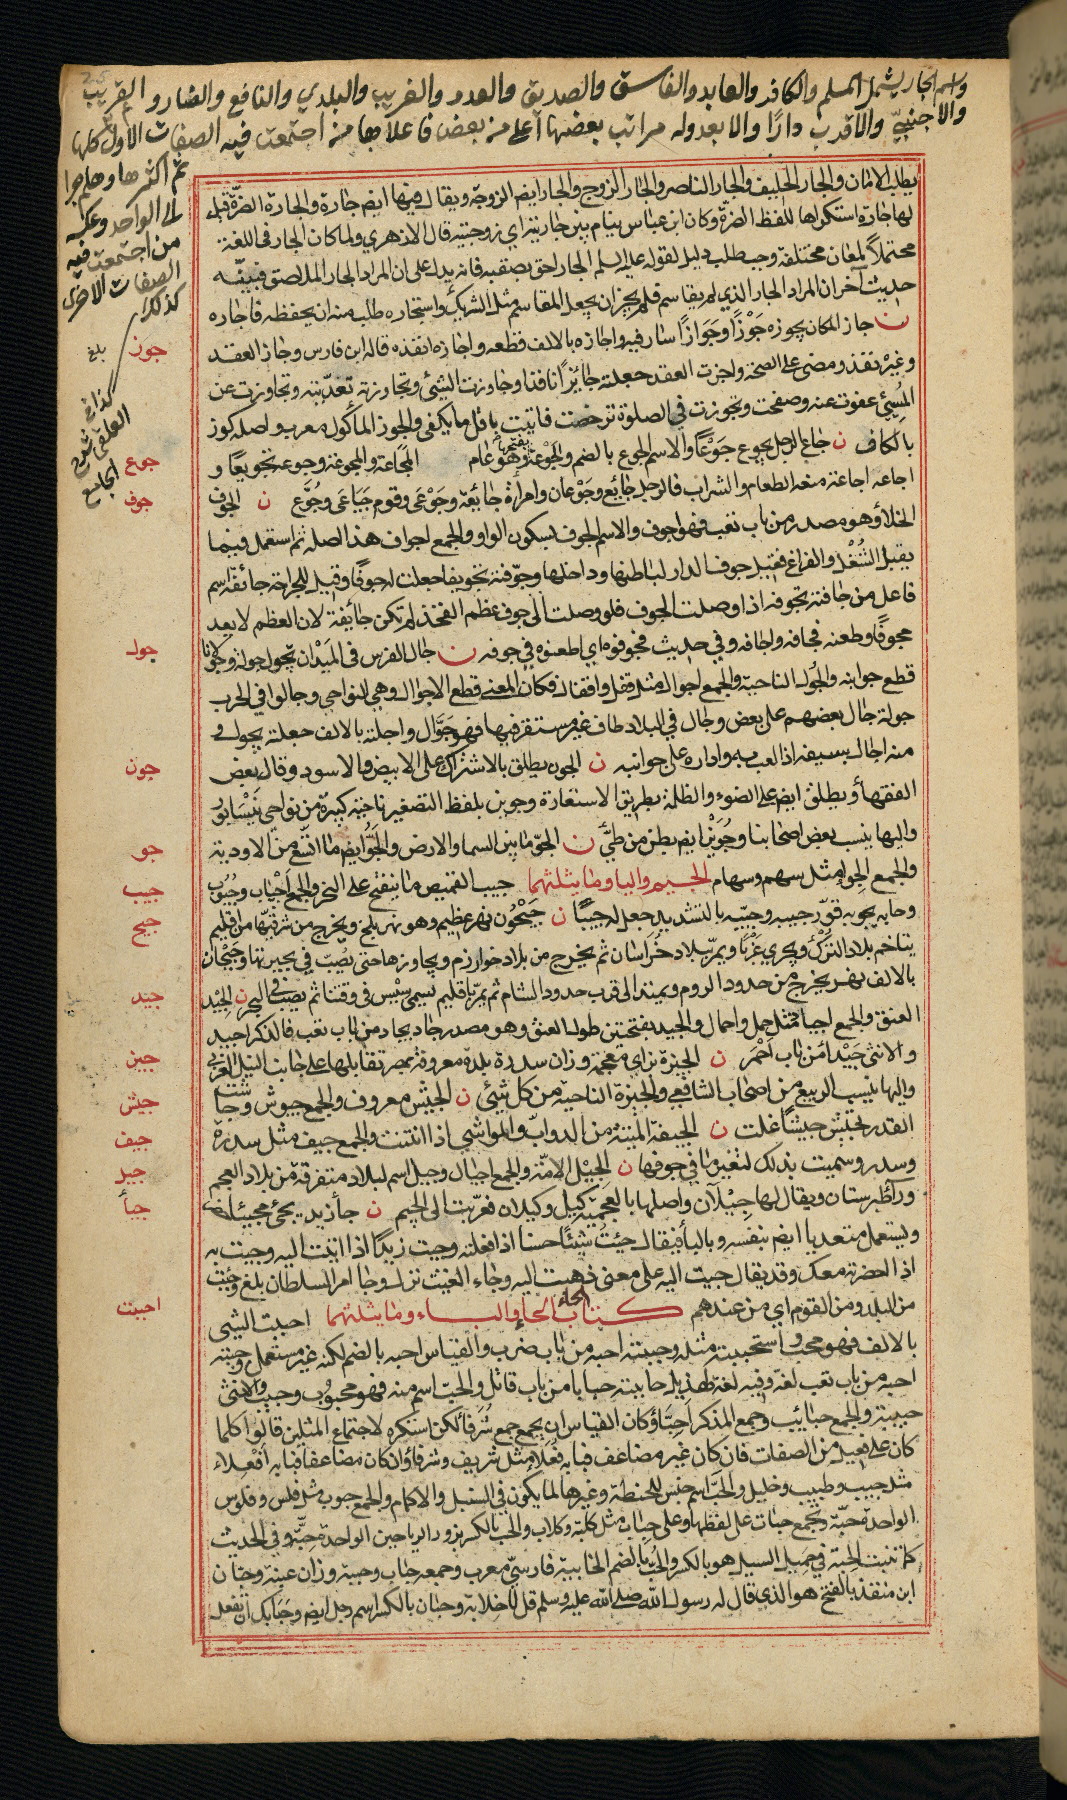 واسم الجار يشمل المسلم والكافر والعابد والفاسق والصديق والعدو والغريب والبلدي والنافع والضار والقريب
والاجنبي والاقرب دارا والابعد وله مراتب بعضها اعلى من بعض فاعلاها من اجتمعت فيه الصفات الاول كلها
ثم اكثرها وهلم جرا
الى الواحد وعكسه
من اجتمعت فيه
الصفات الاخرى
كذلك
يطلب الامان والجار الحليف والجار الناصر والجار الزوج والجار ايضا الزوجة ويقال فيها ايضا جارة والجارة الضرة قيل
لها جارة استكراها للفظ الضرة وكان ابن عباس ينام بين جارتيه اي زوجتيه قال الازهري ولما كان الجار في اللغة
محتملا لمعان مختلفة وجب طلب دليل لقوله عليه السلم الجار احق بصقبه فانه يدل على ان المراد الجار الملاصق فبينه
حديث آخر ان المراد الجار الذي لم يقاسم فلم يجز ان يجعل المقاسم مثل الشريك واستجاره طلب منه ان يحفظه فاجاره
ن جاز المكان يجوزه جَوْزًا وجَوَازًا سار فيه واجازه بالالف قطعه واجازه انفذه قاله ابن فارس وجاز العقد
جوز
بلغ
وغيره نفذ ومضى على الصحة واجزت العقد جعلته جائزا نافذا وجاوزت الشئ وتجاوزته تعديته وتجاوزت عن
المسئ عفوت عنه وصفحت وتجوزت في الصلوة ترخصت فاتيت باقل ما يكفي والجوز الماكول معرب واصله كوز
كذا في
العلقمي شرح
الجامع
بالكاف ن جاع الرجل يجوع جَوْعًا والاسم الجوع بالضم والجَوْعة وهو عام المجاعة والمجوعة وجوعه تجويعا و
جوع
اجاعه اجاعة منعه الطعام والشراب فالرجل جائع وجَوْعان وامراة جائعة وجَوْعَى وقوم جياعى وجُوَّع ن الجوف
جوف
الخلاؤ هو مصدر من باب تعب فهو اجوف والاسم الجوف بسكون الواو والجمع اجواف هذا اصله ثم استعمل فيما
يقبل الشُغْل والفراغ فقيل جوف الدار لباطنها وداخلها وجوّفته تجويفا جعلت له جوفًا وقيل للجراحة جائفة اسم
فاعل من جافته تجوفه اذا وصلت الجوف فلو وصلت الى جوف عظم الفخذ لم تكن جائفة لان العظم لا يعد
مجوفًا وطعنه فجافه واجافه وفي حديث فجوفوه اي اطعنوه في جوفه ن جال الفرس في المَيْدان يجول جولة وجولانا
جول
قطع جوانبه والجُول الناحية والجمع اجوال مثل قفل واقفال فكان المعنى قطع الاجوال وهي النواحي وجالوا في الحرب
جولة جال بعضهم على بعض وجال في البلاد طاف غير مستقر فيها فهو جَوَّال واجلته بالالف جعلته يجول
منه اجال بسيفه اذا لعب به واداره على جوانبه ن الجون يطلق بالاشتراك على الابيض والاسود وقال بعض
جون
الفقهاء ويطلق ايضا على الضوء والظلمة بطريق الاستعارة وجوين بلفظ التصغير ناحية كبيرة من نواحي نَيْسَابور
واليها ينسب بعض اصحابنا وجُوَيْن ايضا بطن من طيّ ن الجوّ ما بين السما والارض والجَوُّ ايضا ما اتسع من الاودية
جو
والجمع الجِوا مثل سهم وسهام الجيم واليا وما يثلثهما جيب القميص ما ينفتح على النحر والجمع اجياب وجيوب
جيب
وجابه يجوبه قوّر جيبه وجيّبه بالتشديد جعل له جيبًا ن جَيْحُون نهر عظيم وهو نهر بلخ ويخرج من شرقيها من اقليم
جيح
يتاخم بلاد التُرْك ويجري غَرْبًا ويمر ببلاد خُرَاسَان ثم يخرج من بلاد خوارزم ويجاوزها حتى يصب في بحيرتها وجَيْحان
بالالف نهر يخرج من حدود الروم ويمتد الى قرب حدود الشام ثم يمر باقليم يسمى سِيْس في وقتنا ثم يصب في البحر ن الجِيْد
جيد
العنق والجمع اجياد مثل حمل واحمال والجيد بفتحتين طول العنق وهو مصدر جاد يجاد من باب تعب فالذكر اجيد
والانثى جَيْداء من باب احْمَر ن الجيزة بزاي معجمة وزان سدرة بلدة معروفة بمصر تقابلها على جانب النيل الغربي
جيز
واليها ينسب الربيع من اصحاب الشافعي والجيزة الناحية من كل شئ ن الجَيْش معروف والجمع جيوش وجاشت
جيش
القدر تجيش جيشًا غلت ن الجيفة الميتة من الدوابّ والمواشي اذا انتنت والجمع جيف مثل سدرة
جيف
وسدر وسميت بذلك لتغير ما في جوفها ن الجِيْل الامة والجمع اجيال وجيل اسم لبلاد متفرقة من بلاد العجم
جيل
وراء طَبرستان ويقال لها جِيْلان واصلها بالعجمية كيل وكيلان فعربت الى الجيم ن جاء زيد يجئ مجيئا
جيأ
ويستعمل متعديا ايضا بنفسه وبالباء فيقال جئتُ شيئًا حسنا اذا فعلته وجيت زيدًا اذا اتيت اليه وجيت به
اذا احضرته معك وقد يقال جيت اليه على معنى ذهبت اليه وجاء الغيث نزل وجا امر السلطان بلغ وجيت
من البلد ومن القوم اي من عندهم كتاب الحاء الحاء والباء وما يثلثهما احببت الشي
احببت
بالالف فهو محب واستحببته مثله وحببته احبه من باب ضرب والقياس احبه بالضم لكنه غير مستعمل وحببته
احبه من باب تعب لغة وفيه لغة لهذيل حاببته حبابا من باب قاتل والحب اسم منه فهو محبوب وحبيب والانثى
حبيبة والجمع حبايب وجمع المذكر احِبّاء وكان القياس ان يجمع جمع شُرَفاء لكن استكره لاجتماع المثلين قالوا كلما
كان على فعيل من الصفات فان كان غير مضاعف فبابه فُعَلاء مثل شريف وشرفاء وان كان مضاعفا فبابه افْعِلاء
مثل حبيب وطبيب وخليل والحَبّ اسم جنس للحنطة وغيرها لما يكون في السنبل والاكمام والجمع حبوب مثل فلس وفلوس
الواحدة حبّة وتجمع حبات على لفظها وعلى حباب مثل كلبة وكلاب والحِب بالكسر بزور الرياحين الواحدة حِبّة وفي الحديث
كما تنبت الحِبة في حميل السيل هو بالكسر والحُبّ بالضم الخابية فارسيّ معرب وجمعه حباب وحببة وزان عنبة وحبّان
ابن منقذ بالفتح هو الذي قال له رسول الله صلى الله عليه وسلم قل لا خلابة وحبان بالكسر اسم رجل ايضا وحَبَابك ان تفعل